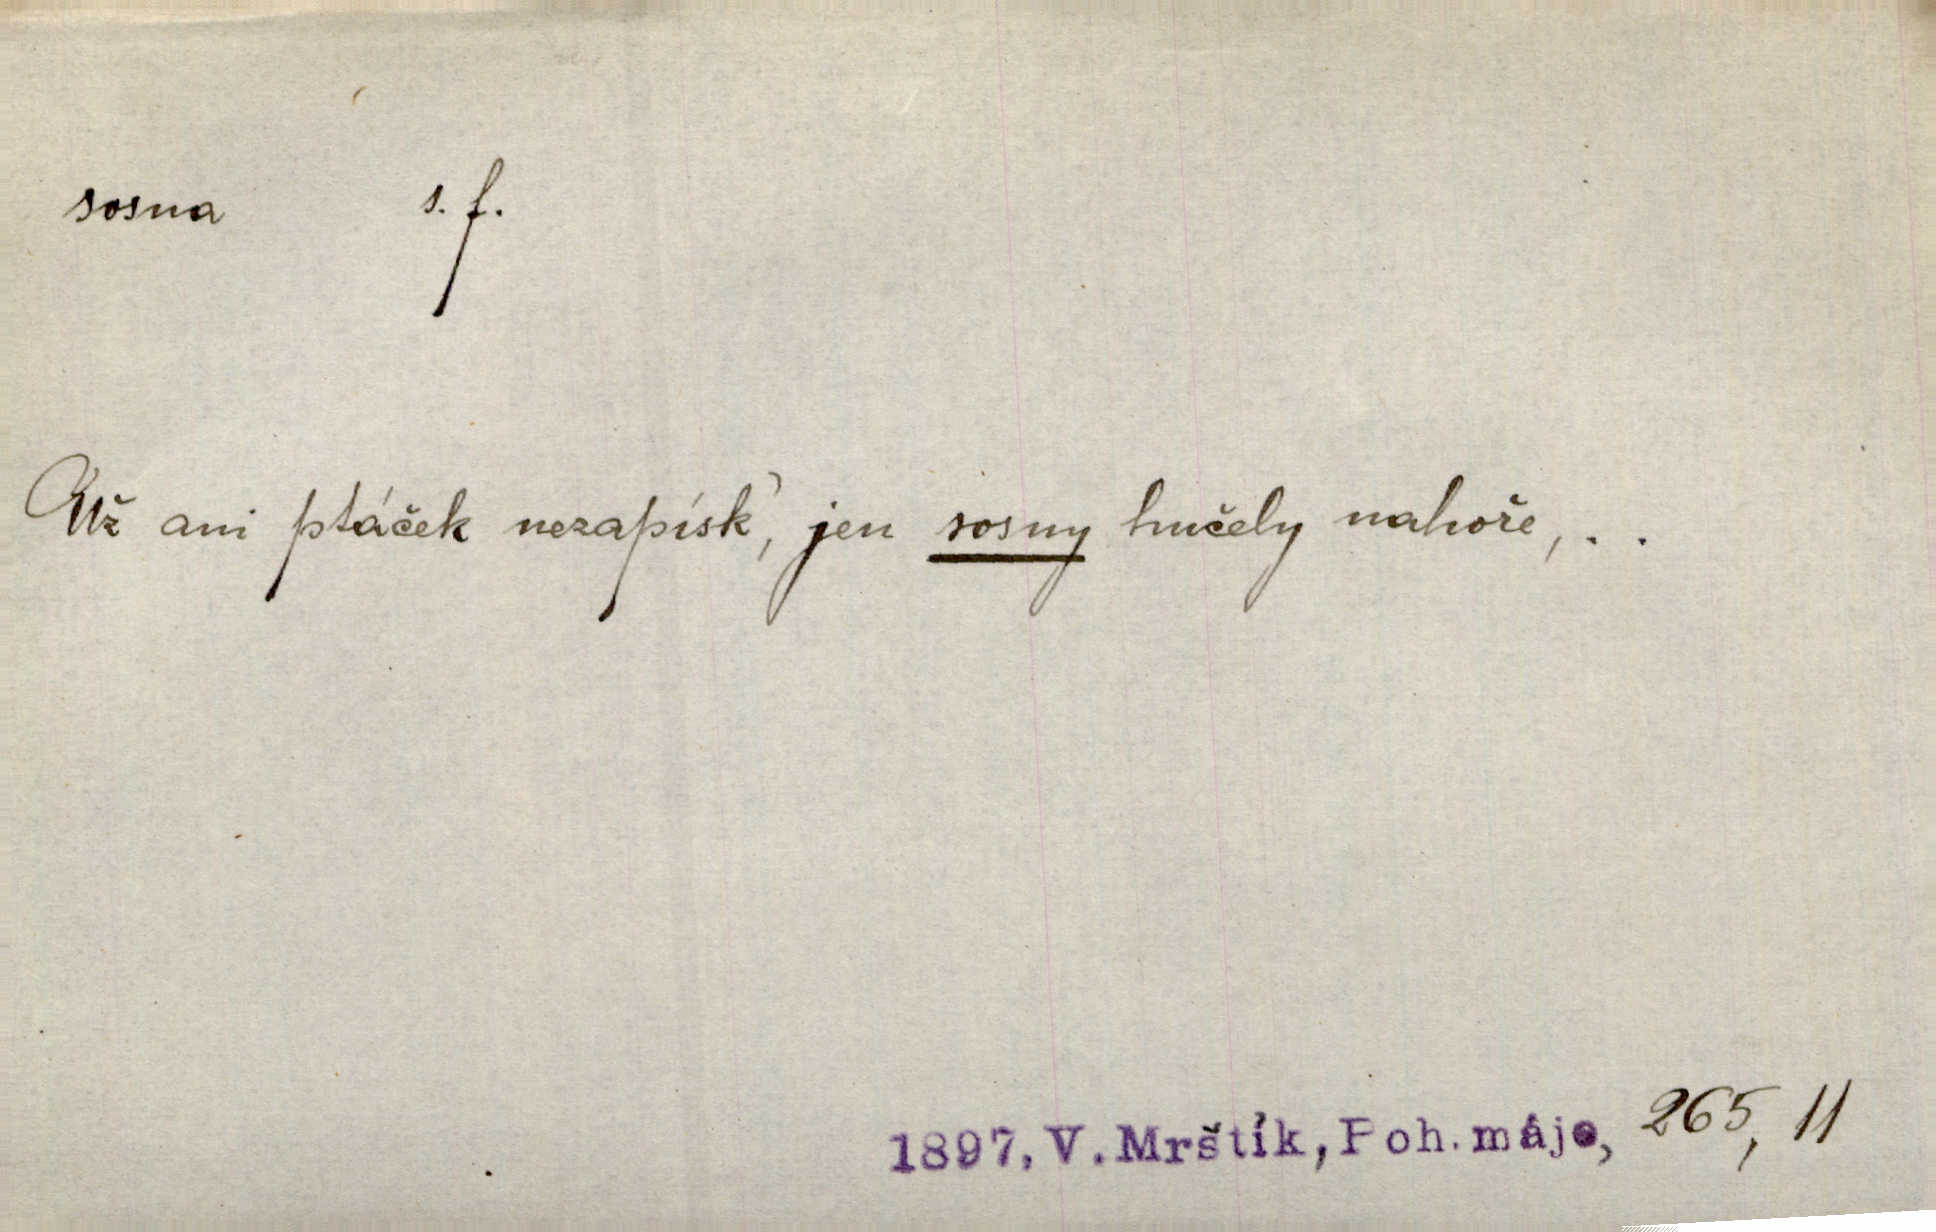 sosna s. f.
Už ani ptáček nezapísk', jen sosny hučely nahoře, . .
1897, V. Mrštík, Poh. máje, 265, 11